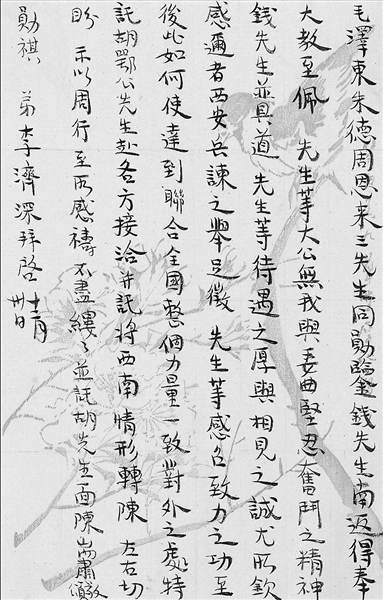 毛澤東朱德周恩来三先生同勛鑒錢先生南返得奉
大教至佩 先生等大公無我與委曲堅忍奮鬥之精神
錢先生並具道 先生等待遇之厚與相見之誠尤所欽
感邇者西安兵諫之舉足徵 先生等感召致力之功至
後此如何使達到聯合全國整個力量一致對外之處特
託胡鄂公先生赴各方接洽并託將西南情形轉陳 左右切
盼 示以周行至所感禱不盡縷々並託胡先生面陳耑肅敬
勛祺 弟李濟深拜啓 十二月
卅日